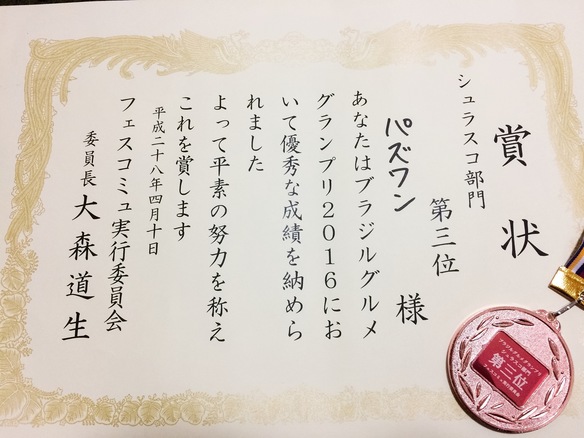 賞状
シュラスコ部門
第三位
パズワン 様
あなたはブラジルグルメ
グランプリ2016にお
いて優秀な成績を納めら
れました
よって平素の努力を称え
これを賞します
平成二十八年四月十日
フェスコミュ実行委員会
委員長 大森道生
ブラジルグルメグランプリ
シュラスコ部門
第三位